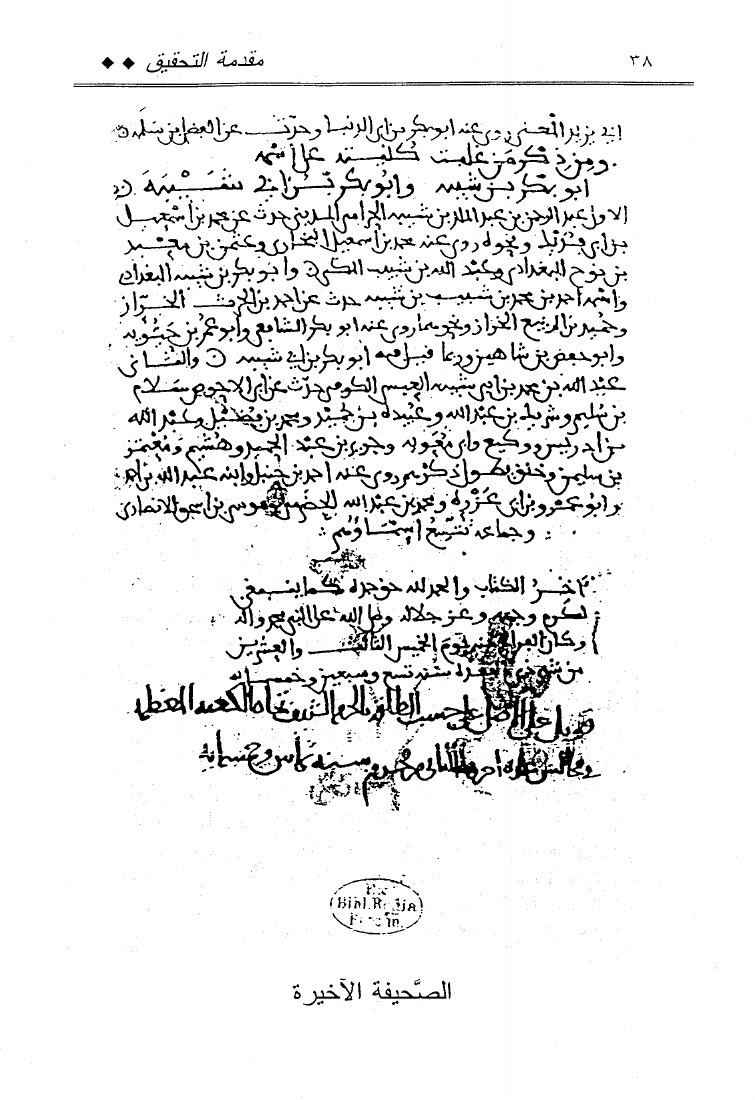 ٣٨ مقدمة التحقيق
ابي يزيد روى عنه ابو بكر بن ابي الدنيا وحدث عن الفضل بن
ومن ذكر من غلبت كنيته على اسمه
ابو بكر بن شيبه وابو بكر بن ابي
الاول عبد الرحمن بن عبد الملك بن شيبه الحزامي المديني حدث عن محمد بن اسمعيل
بن ابي فديك ونحوه روى عنه محمد بن اسمعيل البخاري
بن نوح البغدادي وعبد الله بن شبيب المكي وابو بكر بن شيبه البغدادي
واسمه احمد بن محمد بن شبيب بن شيبه حدث عن احمد بن الحرث الخزاز
وحميد بن الربيع الخزاز ونحوهما روى عنه ابو بكر الشافعي وابو عمر بن حيويه
وابو حفص بن شاهين وربما قيل فيه ابو بكر بن ابي شيبه والثاني
عبد الله بن محمد بن ابي شيبه العبسي الكوفي حدث عن ابي الاحوص سلام
بن سليم وشريك بن عبد الله وعبيدة بن حميد ومحمد بن فضيل وعبد الله
بن ادريس ووكيع وابي معويه وجرير بن عبد الحميد وهشيم ومعتمر
بن سليمن وخلق يطول ذكرهم روى عنه احمد بن حنبل وابنه عبد الله بن احمد
وابو عمرو بن ابي غرزة ومحمد بن عبد الله الحضرمي وموسى بن اسحق الانصاري
وجماعه تتسع اسماؤهم
اخر الكتاب والحمد لله حق حمده كما ينبغي
لكرم وجهه وعز جلاله وصلى الله على النبي محمد واله
وكان الفراغ منه يوم الخميس الثالث والعشرين
من شهر ذي القعدة سنة تسع وسبعين وخمسمايه
قوبل على الاصل على حسب الطاقه بالحرم الشريف تجاه الكعبه المعظمه
سنة ثمانين وخمسمايه
Ex
Bibl. Regia
الصَّحيفة الأخيرة